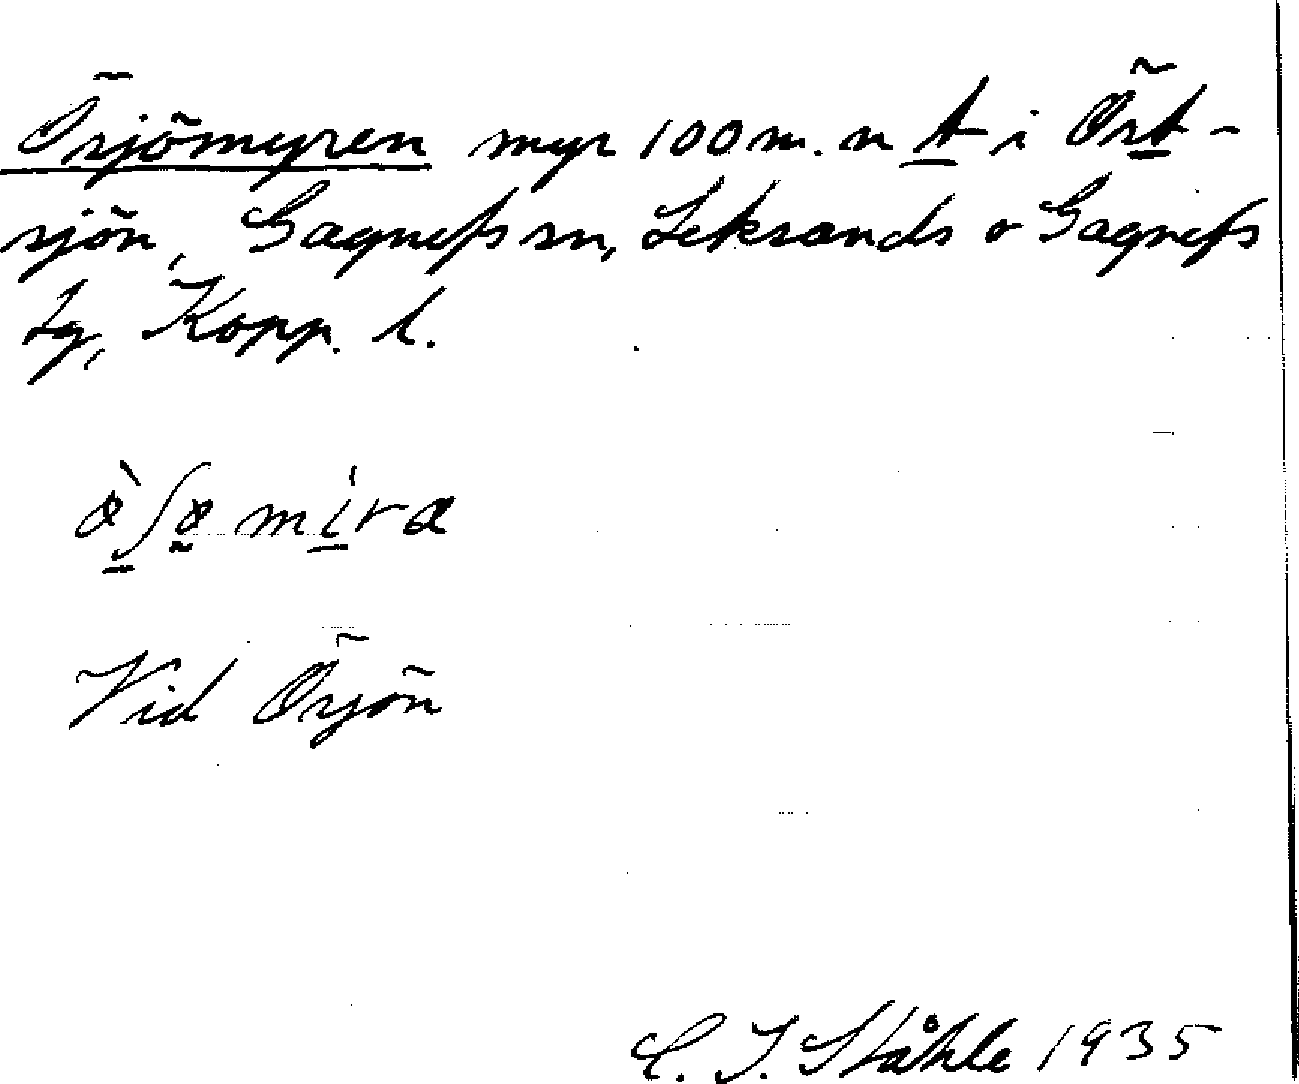 Örsjömyren myr 100 m. n t i Ört-
sjön, Gagnefs sn, Leksands o Gagnefs
tg, Kopp. l.
Vid Örsjön
C. I. Ståhle 1935